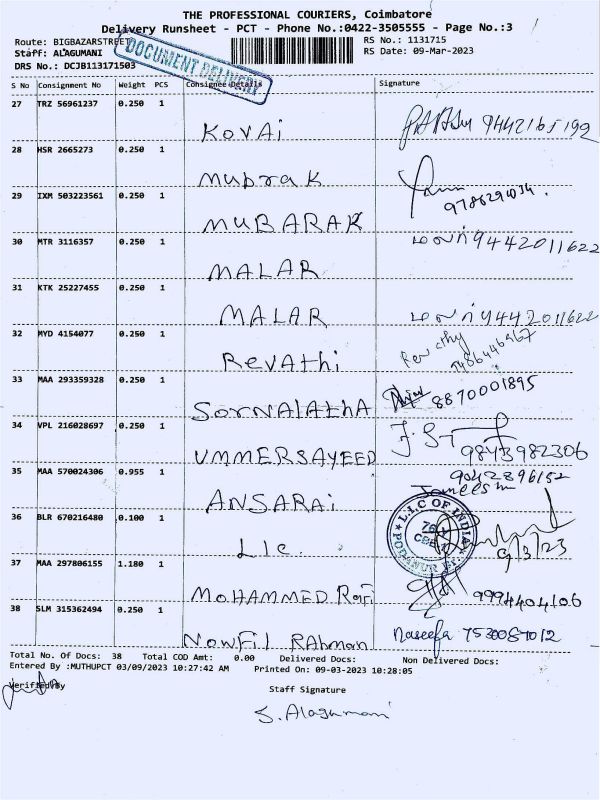 THE PROFESSIONAL COURIERS, Coimbatore
Delivery Runsheet - PCT - Phone No.:0422-3505555 - Page No.:3
Route: BIGBAZARSTREET RS No.: 1131715
Staff: ALAGUMANI RS Date: 09-Mar-2023
DRS No.: DCJB113171503
DOCUMENT DELIVERY
S No Consignment No Weight PCS Consignee Details Signature
27 TRZ 56961237 0.250 1
KOVAi 9442165192
28 HSR 2665273 0.250 1
mubrak 9786291034.
29 IXM 503223561 0.250 1
MUBARAK
30 MTR 3116357 0.250 1 மலர் 9442011622
MALAR
31 KTK 25227455 0.250 1
MALAR மலர் 9442011622
32 MYD 4154077 0.250 1
Revathi Revathy
33 MAA 293359328 0.250 1
SornalathA 8870001895
34 VPL 216028697 0.250 1
UMMERSAYEED 9843982306
35 MAA 570024306 0.955 1 9042896152
ANSARAi
36 BLR 670216480 0.100 1 L.I.C OF INDIA
Lic. PODANUR
9/3/23
37 MAA 297806155 1.180 1
MOHAMMED Rafi 9994404106
38 SLM 315362494 0.250 1
Nowfil RAhman Naseefa 7530087012
Total No. Of Docs: 38 Total COD Amt: 0.00 Delivered Docs: Non Delivered Docs:
Entered By :MUTHUPCT 03/09/2023 10:27:42 AM Printed On: 09-03-2023 10:28:05
Verified By
Staff Signature
S. Alagumani